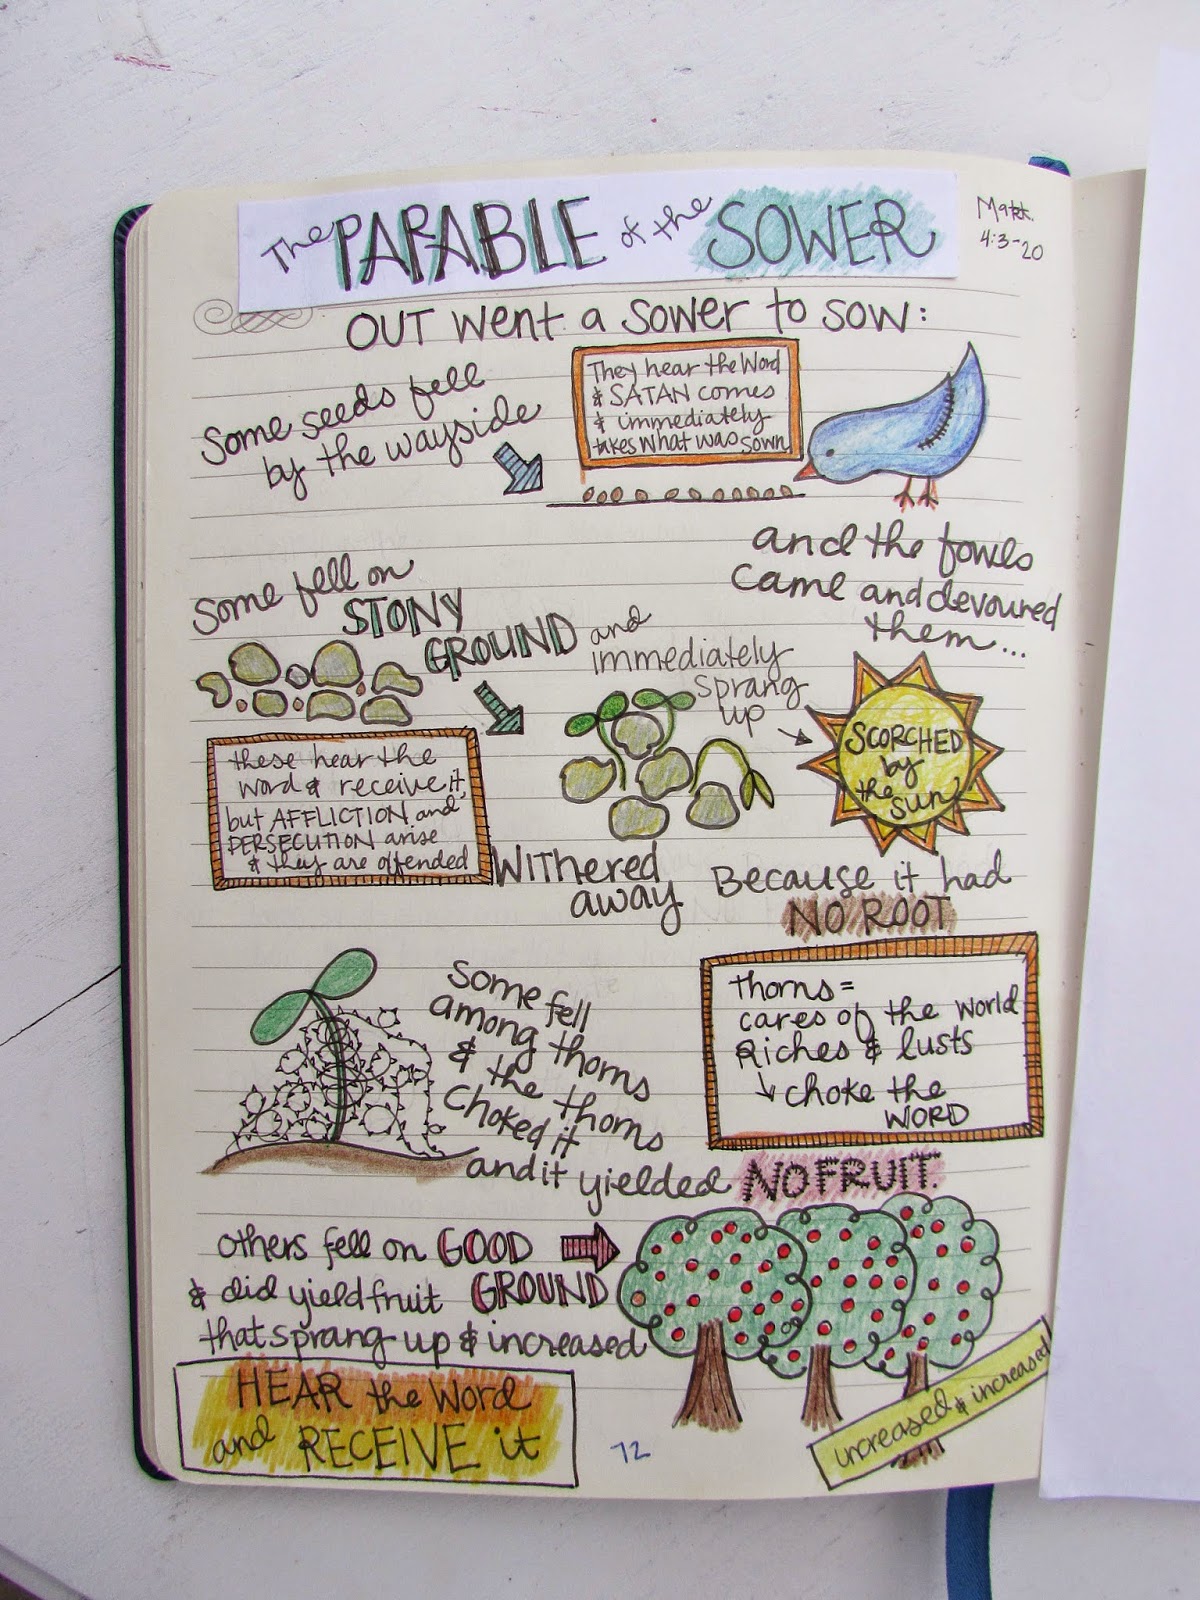 The PARABLE of the SOWER
Matt.
4:3-20
OUT went a sower to sow:
Some seeds fell
by the wayside
They hear the Word
& SATAN comes
& immediately
takes what was sown
and the fowls
came and devoured
them...
Some fell on
STONY
GROUND
and
immediately
sprang
up
SCORCHED
by
the
sun
these hear the
word & receive it,
but AFFLICTION and
PERSECUTION arise
& they are offended
Withered
away
Because it had
NO ROOT
Some fell
among thorns
& the thorns
choked it
and it yielded NO FRUIT.
thorns =
cares of the world
Riches & lusts
choke the
WORD
others fell on GOOD
GROUND
& did yield fruit
that sprang up & increased
increased & increased
HEAR the Word
and RECEIVE it
72